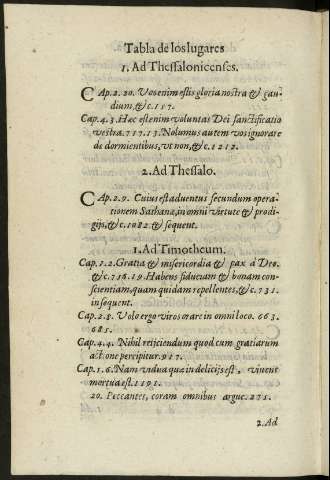 Tabla de los lugares
1. Ad Thessalonicenses.
CAp. 2. 20. Vos enim estis gloria nostra & gau-
dium, &c. 117.
Cap. 4. 3. Hæc est enim voluntas Dei sanctificatio
vestra. 717. 13. Nolumus autem vos ignorare
de dormientibus, vt non, &c. 1212.
2. Ad Thessalo.
CAp. 2. 9. Cuius est aduentus secundum opera-
tionem Sathanæ, in omni virtute & prodi-
gijs, &c. 1082 & sequent.
1. Ad Timotheum.
Cap. 1. 2. Gratia & misericordia & pax à Deo.
&c. 19. Habens fiduciam & bonam con-
scientiam, quam quidam repellentes, &c. 731.
insequent.
Cap. 2. 8. Volo ergo viros orare in omni loco. 663.
681.
Cap. 4. 4. Nihil reijciendum quod cum gratiarum
actione percipitur. 917.
Cap. 1. 6. Nam vidua quæ in delicijs est, viuens
mortua est. 1191.
20. Peccantes, coram omnibus argue. 271.
2. Ad